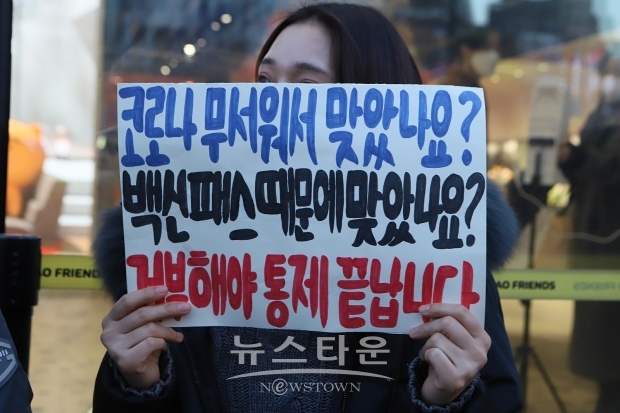 코로나 무서워서 맞았나요?
백신패스 때문에 맞았나요?
거부해야 통제 끝납니다
AO FRIENDS
AO FRIENDS
뉴스타운
NEWSTOWN